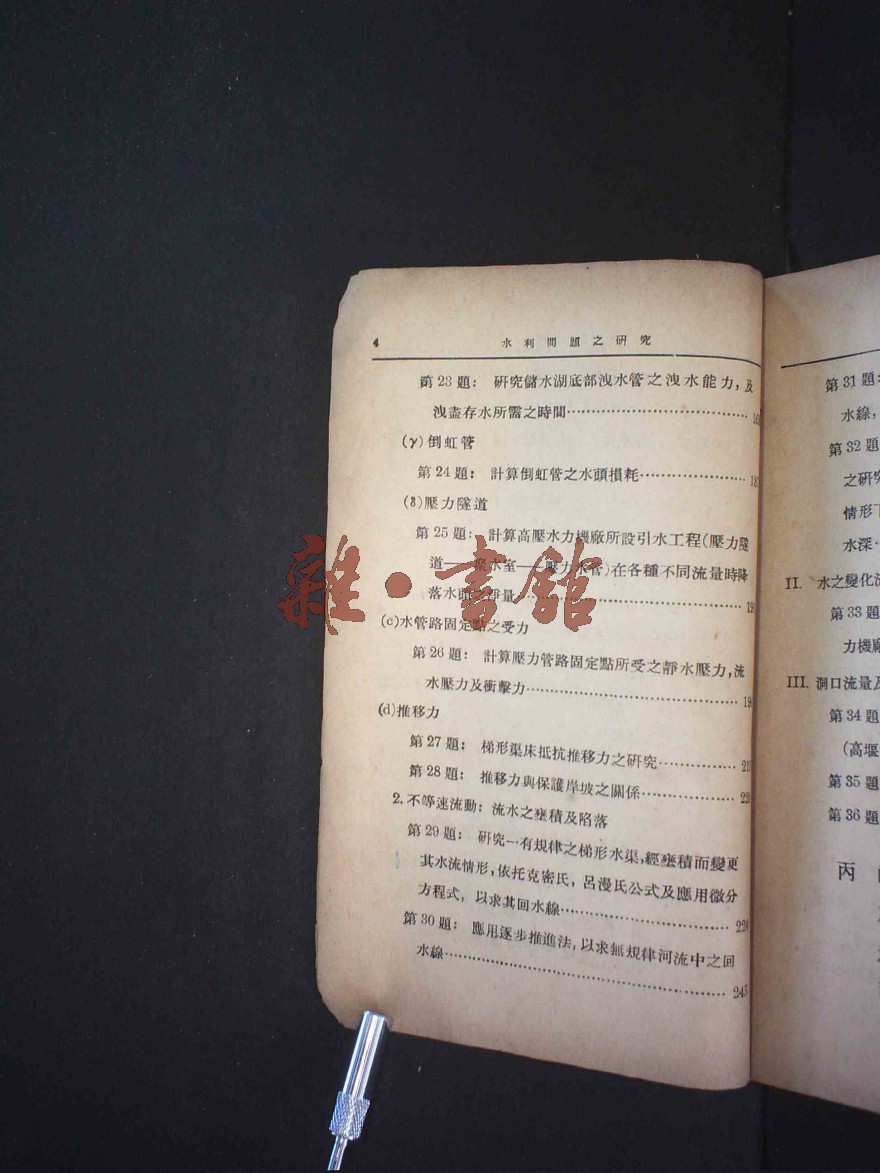 4 水利問題之研究
第23題： 研究儲水湖底部洩水管之洩水能力，及
洩盡存水所需之時間
(γ)倒虹管
第24題： 計算倒虹管之水頭損耗 187
(δ)壓力隧道
第25題： 計算高壓水力機廠所設引水工程(壓力隧
道——聚水室——壓力水管)在各種不同流量時降
落水頭之淨量
(c)水管路固定點之受力
第26題： 計算壓力管路固定點所受之靜水壓力，流
水壓力及衝擊力
(d)推移力
第27題： 梯形渠床抵抗推移力之研究
第28題： 推移力與保護岸坡之關係
2.不等速流動： 流水之壅積及陷落
第29題： 研究一有規律之梯形水渠，經壅積而變更
其水流情形，依托克密氏，呂漫氏公式及應用微分
方程式，以求其回水線 224
第30題： 應用逐步推進法，以求無規律河流中之回
水線 245
第31題：
水線，
第32題
之研究
情形下
水深
II. 水之變化
第33題
力機廠
III. 洞口流量及
第34題
(高堰
第35題
第36題
丙
雜·書館